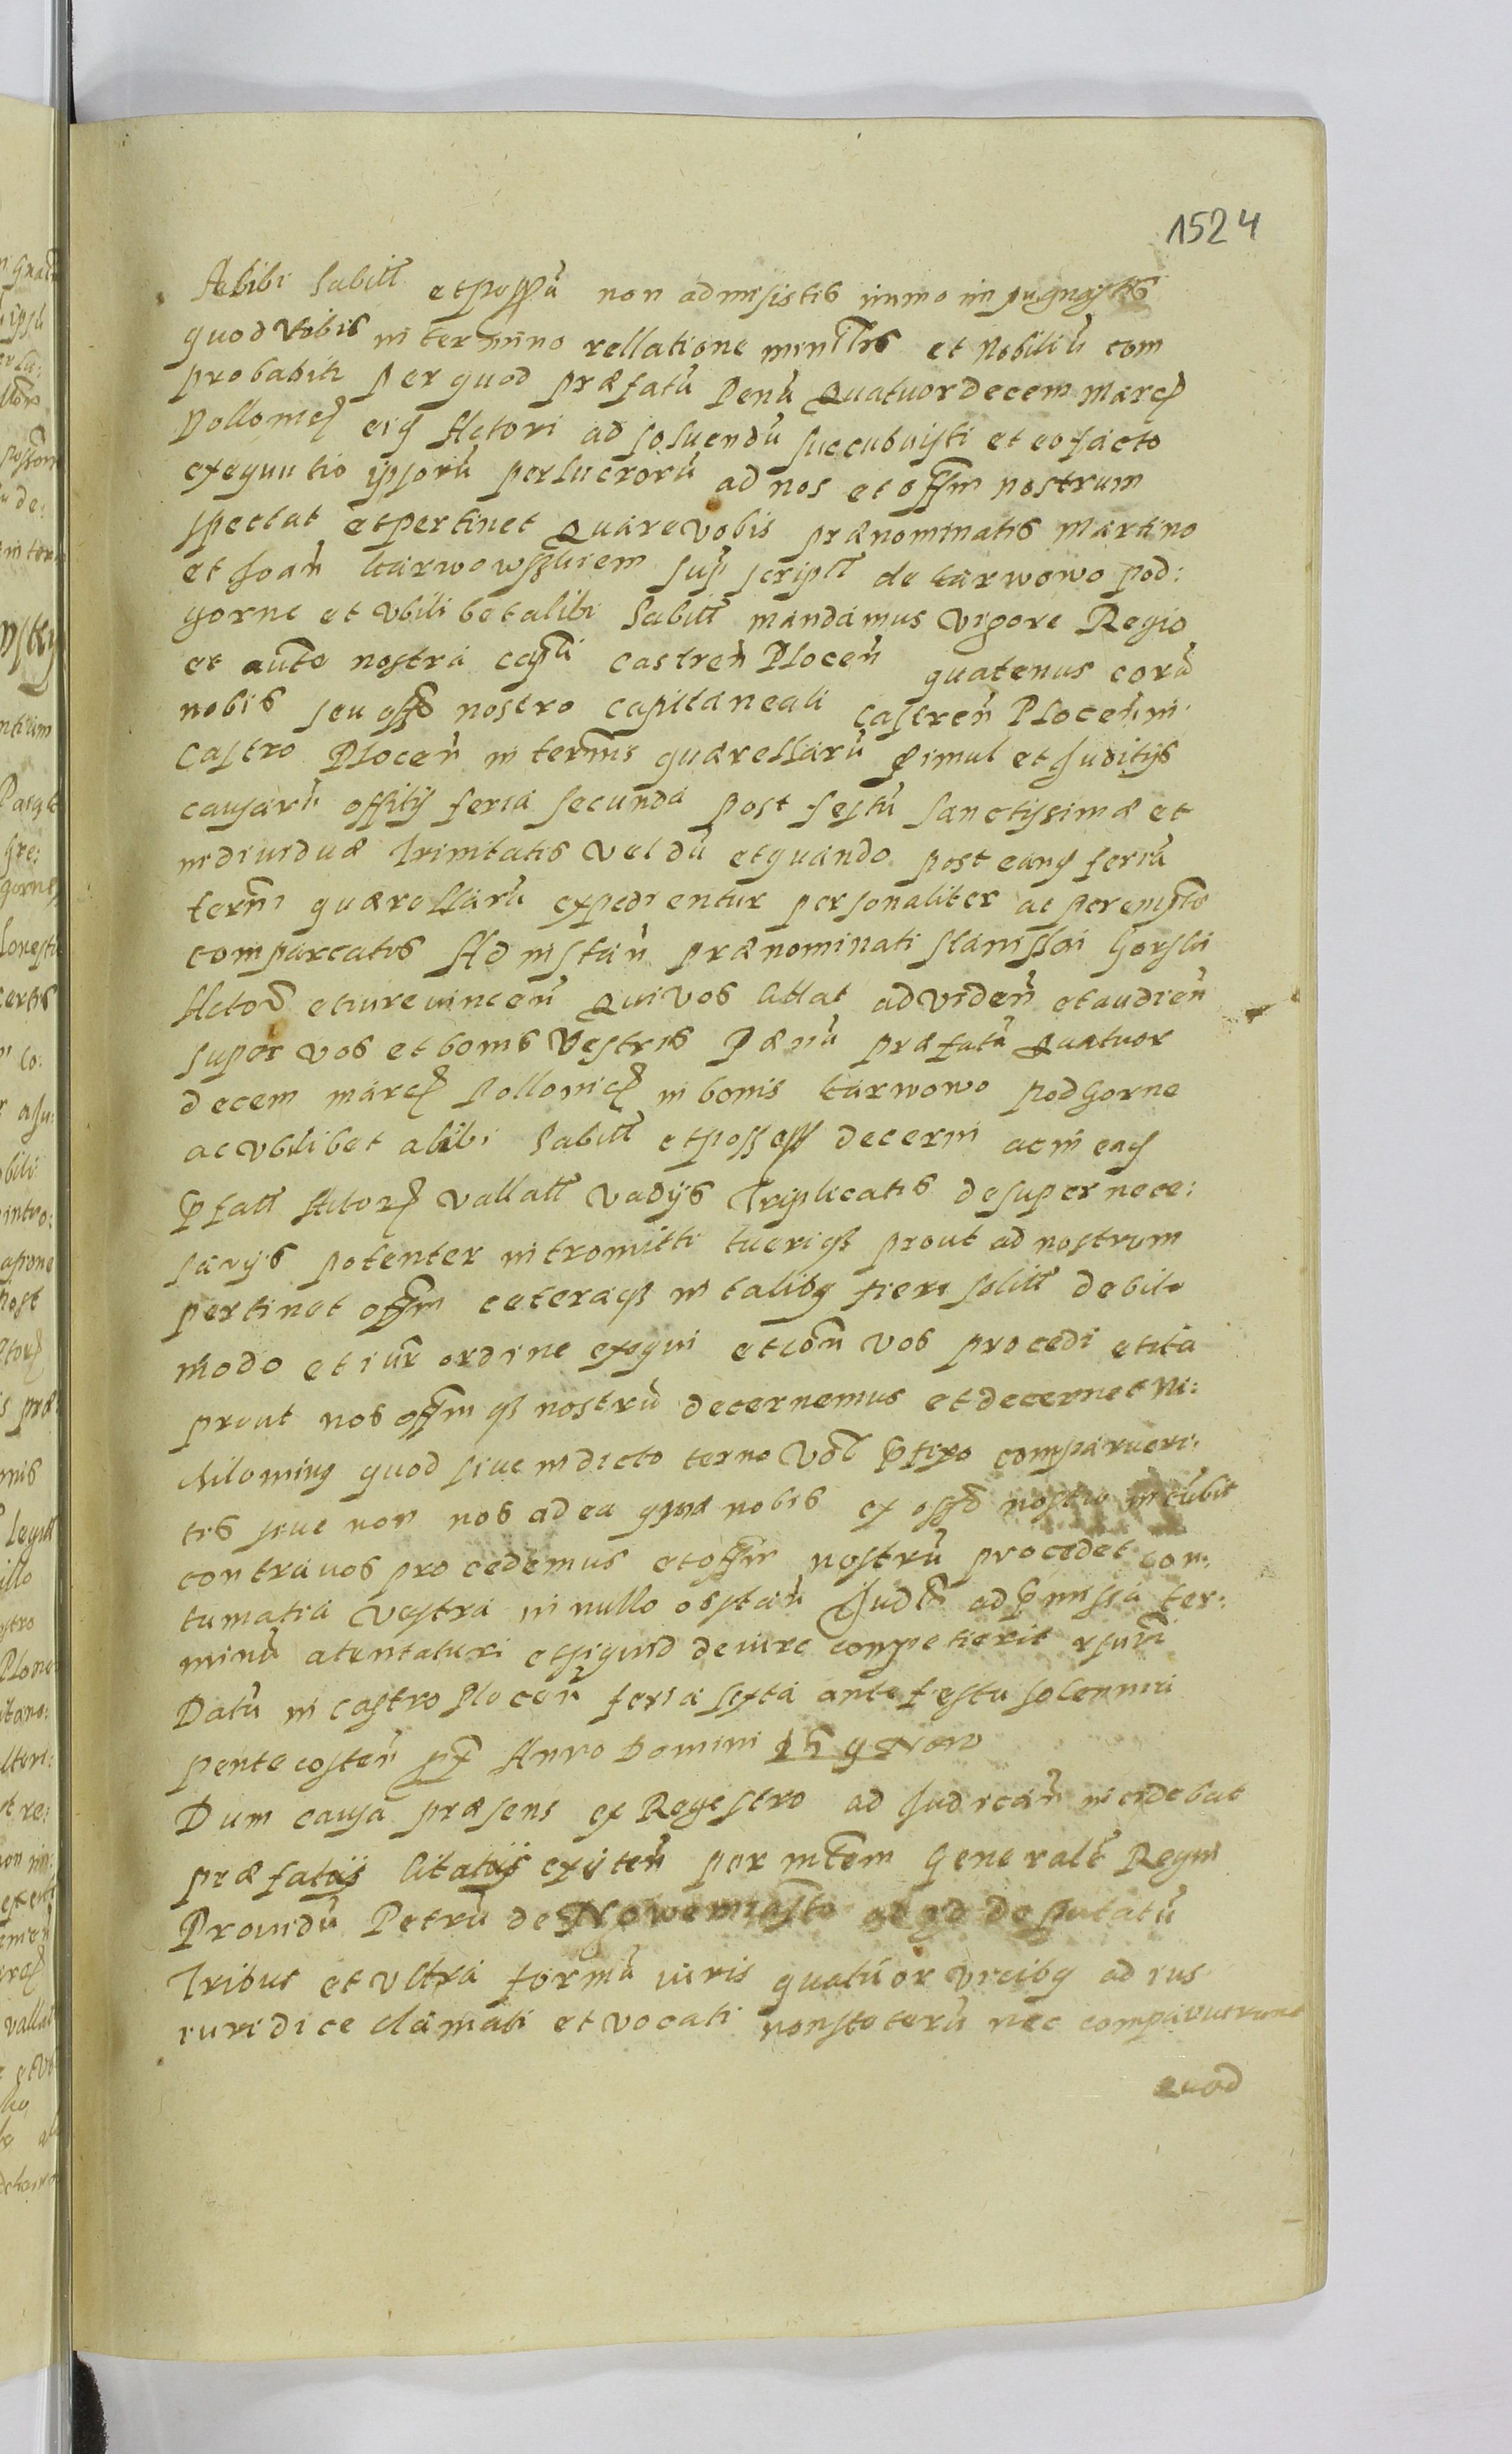 1524
Alibi habitt et possessa non admisistis immo impugnastis
quod Vobis in termino rellatione min̅lis et Nobiliū com
probabit per quod præfatū Penū Quatuordecem Marcȩ
Pollonicȩ eiȩ Actori ad soluendū succubuisti et eo facto
exequutio ipsorū perlucrorū ad nos et offm nostrum
spectat et pertinet Quare vobis prænominatis Martino
et Joan̄ karwowszkiem sup scriptt de karwowo pod:
gorne et vbilibet alibi habitt mandamus vigore Regio
et aut̅e nostra capti castren̄ Plocen̄ quatenus corā
nobis seu offo nostro capitaneali castren̄ Plocen̄ in
Castro Plocen̄ in termis quærellarū simul et Juditijs
causarū offitij feria secunda post festū sanctissimæ et
indiuiduæ Trinitatis vel dū et quando post eanȩ feriā
term̄i quærellarū expedientur personaliter ac perempt̅e
compareatis Ad instan̄ prænominati stanislai Gorski
Actoȓ et iure uincen̄ Qui vos Citat ad viden̄ et audien̄
super vos et bonis Vestris Pænā præfatā Quatuor
decem marcȩ Pollonicȩ in bonis karwowo podGorne
ac vbilibet alibi habitt et possess decerni ac in eaȩ
p̅fatt Actorȩ vallatt vadijs Triplicatis desuper nece:
sarijs potenter intromitti tueriqȝ prout ad nostrum
pertinet offm ceteraqȝ in talibȩ fieri solitt debito
modo et iur̄ ordine exequi et con̄ vos procedi et ita
prout nos offm qȝ nostrū decernemus et decernet Ni:
chilominȩ quod siue in dicto termo Vot p̅fixo comparueri:
tis siue non nos ad ea quæ nobis ex offo nostro incubit
contra uos procedemus et offm nostrū procedet con:
tumatia vestra in nullo obstan̄ Judt̅ ad p̅missa ter:
minū atentaturi et siquid de iure competierit rsuri
Datū in castro Plocen̄ feria sexta ante festa solennia
pentecosten̄ px̅ Anno Domini 159 Non
Dum causa præsens ex Regestro ad Judican̄ incidebat
præfatijs Citatijs exiten̄ per mtem Generale Regni
Prouidū Petrū de Nowemiasto ad id deputatū
Tribus et vltra formā iuris quatuor vicibȩ ad ius
iuridice clamati et vocati non steterū nec comparuerunt
Quod